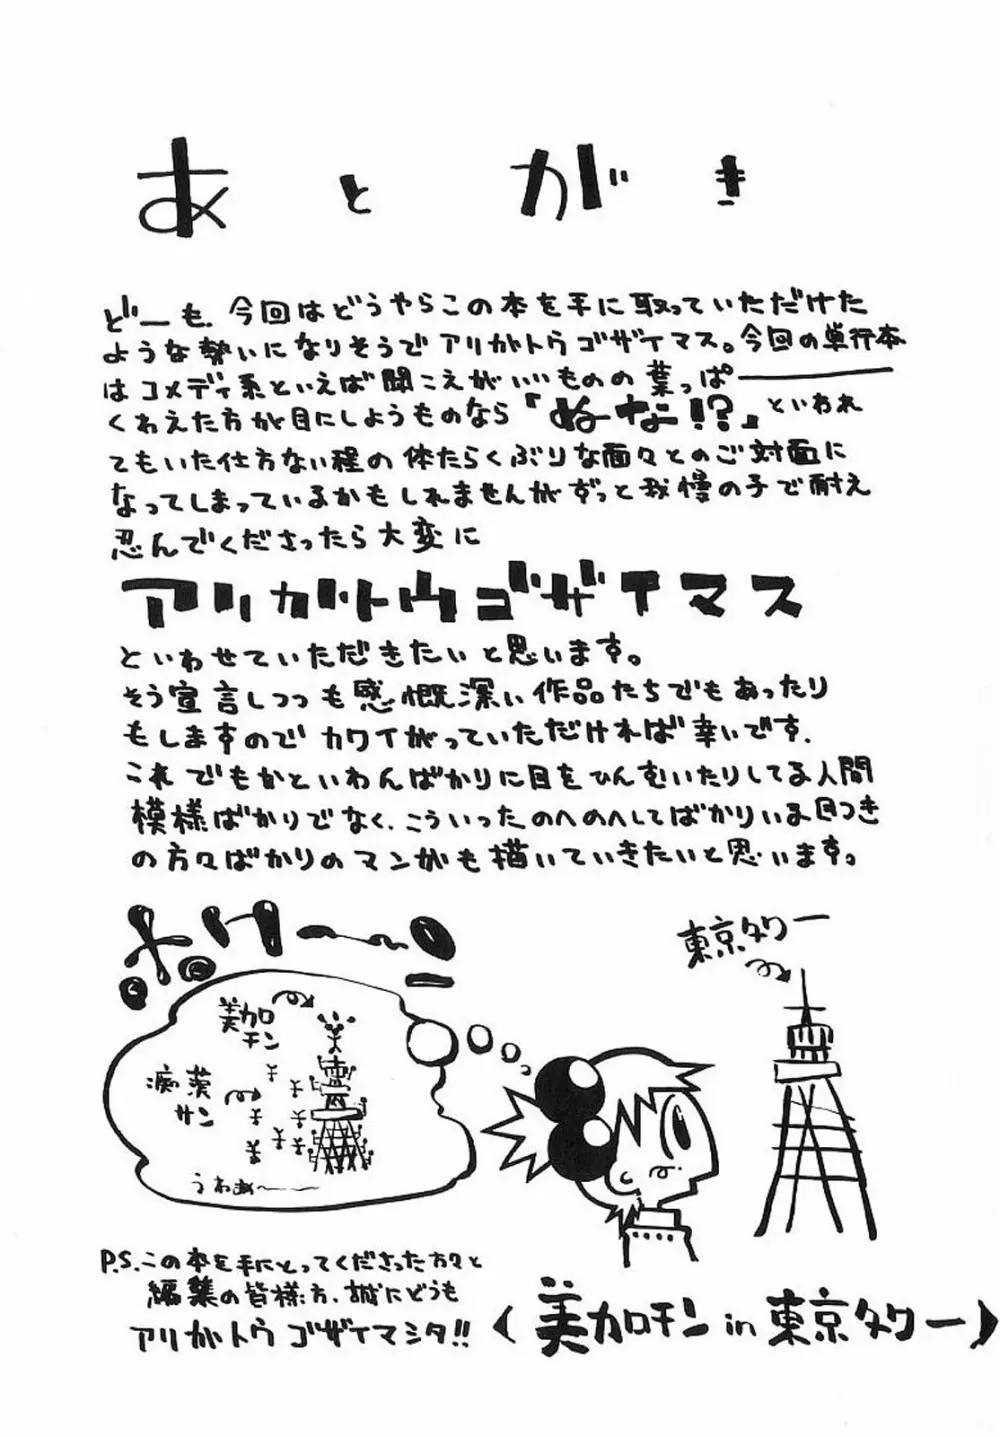 あとがき
どーも、今回はどうやらこの本を手に取っていただけた
ような勢いになりそうでアリガトウゴザイマス。今回の単行本
はコメディ系といえば聞こえがいいものの葉っぱ――
くわえた方が目にしようものなら『ぬーな!?』といわれ
てもいた仕方ない程の体たらくぶりな面々とのご対面に
なってしまっているかもしれませんがずっと我慢の子で耐え
忍んでくださったら大変に
アリガトウゴザイマス
といわせていただきたいと思います。
そう宣言しつつも感慨深い作品たちでもあったり
もしますのでカワイがっていただければ幸いです.
これでもかといわんばかりに目をひんむいたりしてる人間
模様ばかりでなく、こういったのへのへしてばかりいる目つき
の方々ばかりのマンガも描いていきたいと思います。
東京タワー
美カロ
チン
痴漢
サン
うわぁ～――
P.S.この本を手にとってくださった方々と
編集の皆様方、誠にどうも
アリガトウゴザイマシタ!!
〈美カロチン in 東京タワー〉